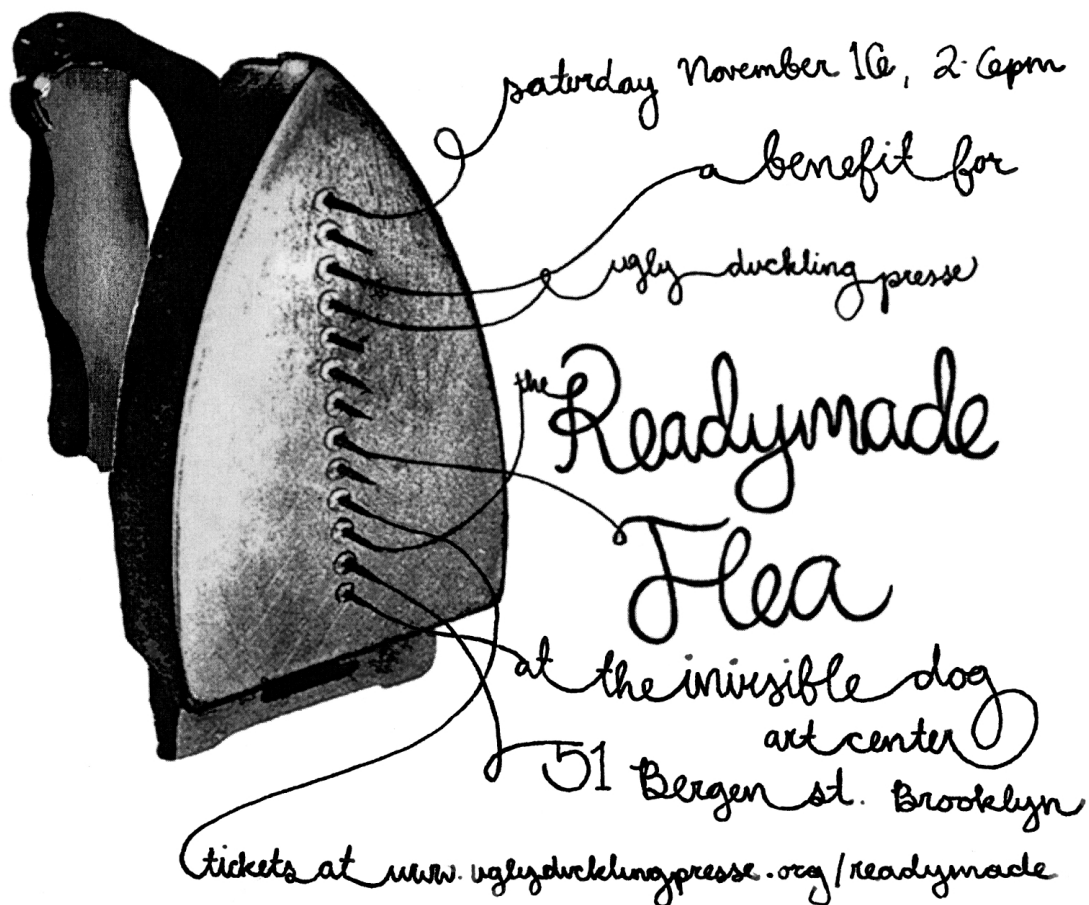 saturday November 16, 2-6pm
a benefit for
ugly duckling presse
the Readymade
Flea
at the invisible dog
art center
51 Bergen st. Brooklyn
tickets at www.uglyducklingpresse.org/readymade